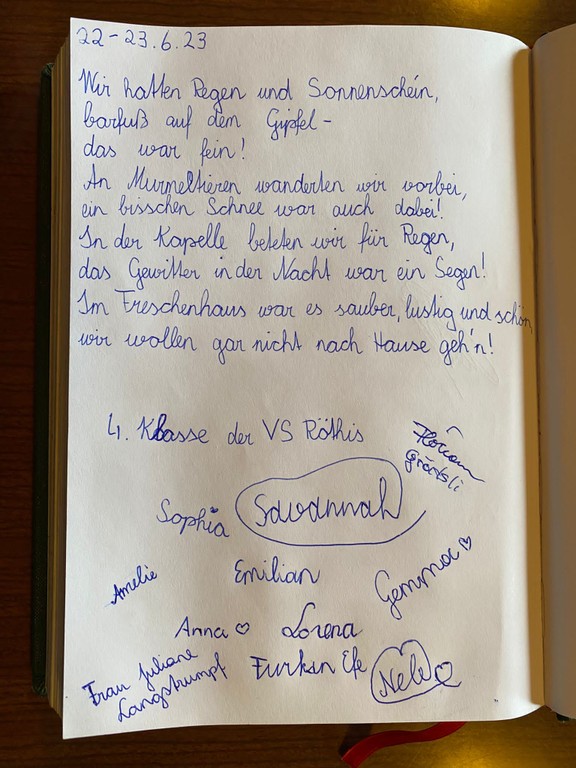 22-23.6.23
Wir hatten Regen und Sonnenschein,
barfuß auf dem Gipfel -
das war fein!
An Murmeltieren wanderten wir vorbei,
ein bisschen Schnee war auch dabei!
In der Kapelle beteten wir für Regen,
das Gewitter in der Nacht war ein Segen!
Im Freschenhaus war es sauber, lustig und schön,
wir wollen gar nicht nach Hause geh'n!
4. Klasse der VS Röthis
Sophia
Savannah
Amelie
Emilian
Gemma
Anna
Lorena
Frau Juliane
Langstrumpf
Furkan Efe
Nele